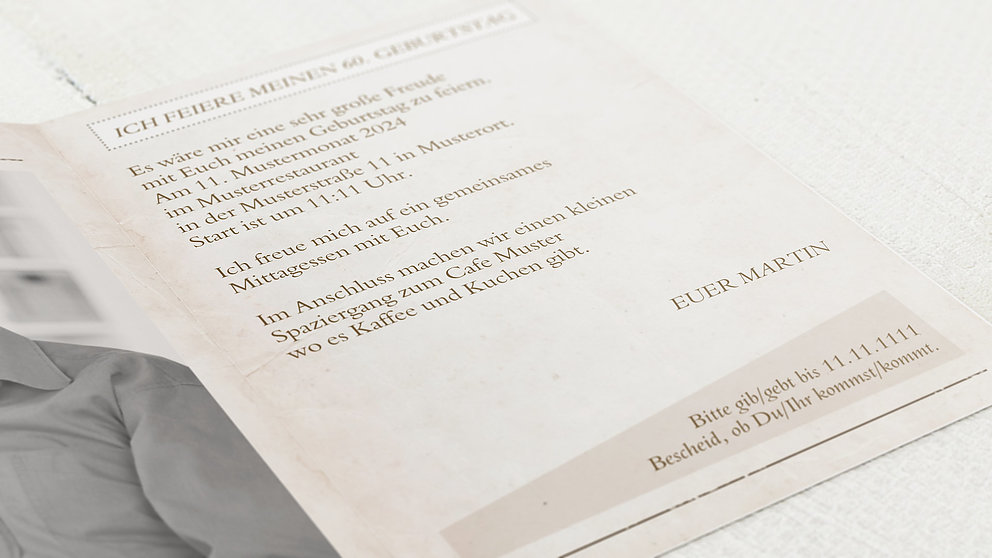 ICH FEIERE MEINEN 60. GEBURTSTAG
Es wäre mir eine sehr große Freude
mit Euch meinen Geburtstag zu feiern.
Am 11. Mustermonat 2024
im Musterrestaurant
in der Musterstraße 11 in Musterort.
Start ist um 11:11 Uhr.
Ich freue mich auf ein gemeinsames
Mittagessen mit Euch.
Im Anschluss machen wir einen kleinen
Spaziergang zum Cafe Muster
wo es Kaffee und Kuchen gibt.
EUER MARTIN
Bitte gib/gebt bis 11.11.1111
Bescheid, ob Du/Ihr kommst/kommt.